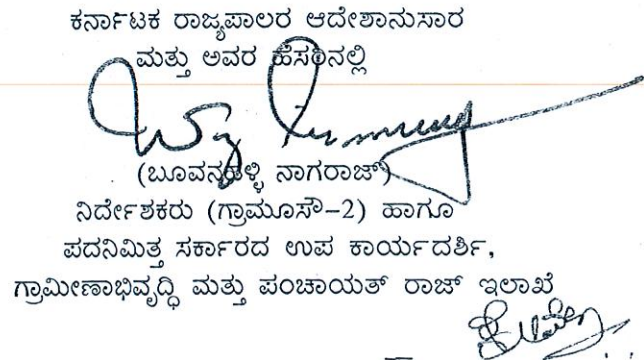 ಕರ್ನಾಟಕ ರಾಜ್ಯಪಾಲರ ಆದೇಶಾನುಸಾರ
ಮತ್ತು ಅವರ ಹೆಸರಿನಲ್ಲಿ
(ಬೂವನಹಳ್ಳಿ ನಾಗರಾಜ್)
ನಿರ್ದೇಶಕರು (ಗ್ರಾಮೂಸೌ-2) ಹಾಗೂ
ಪದನಿಮಿತ್ತ ಸರ್ಕಾರದ ಉಪ ಕಾರ್ಯದರ್ಶಿ,
ಗ್ರಾಮೀಣಾಭಿವೃದ್ಧಿ ಮತ್ತು ಪಂಚಾಯತ್ ರಾಜ್ ಇಲಾಖೆ